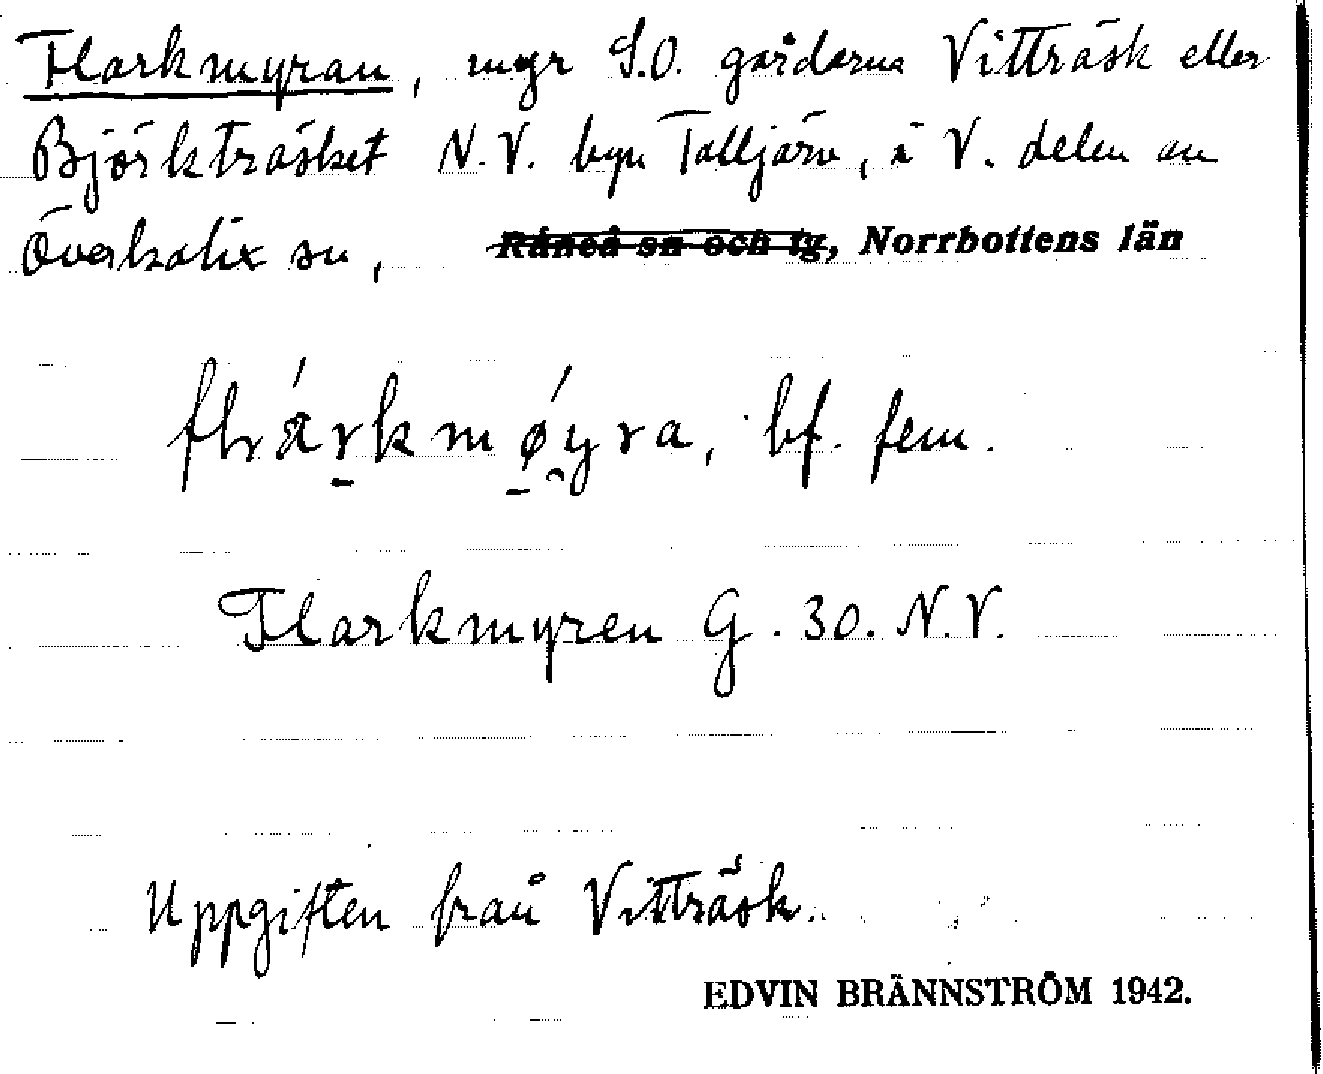 Flarkmyran, myr S.O. gårdarna Vitträsk eller
Björkträsket N.V. byn Talljärv, i V. delen av
Överkalix sn, Råneå sn och tg, Norrbottens län
bf. fem.
Flarkmyren G. 30. N.V.
Uppgiften från Vitträsk.
EDVIN BRÄNNSTRÖM 1942.